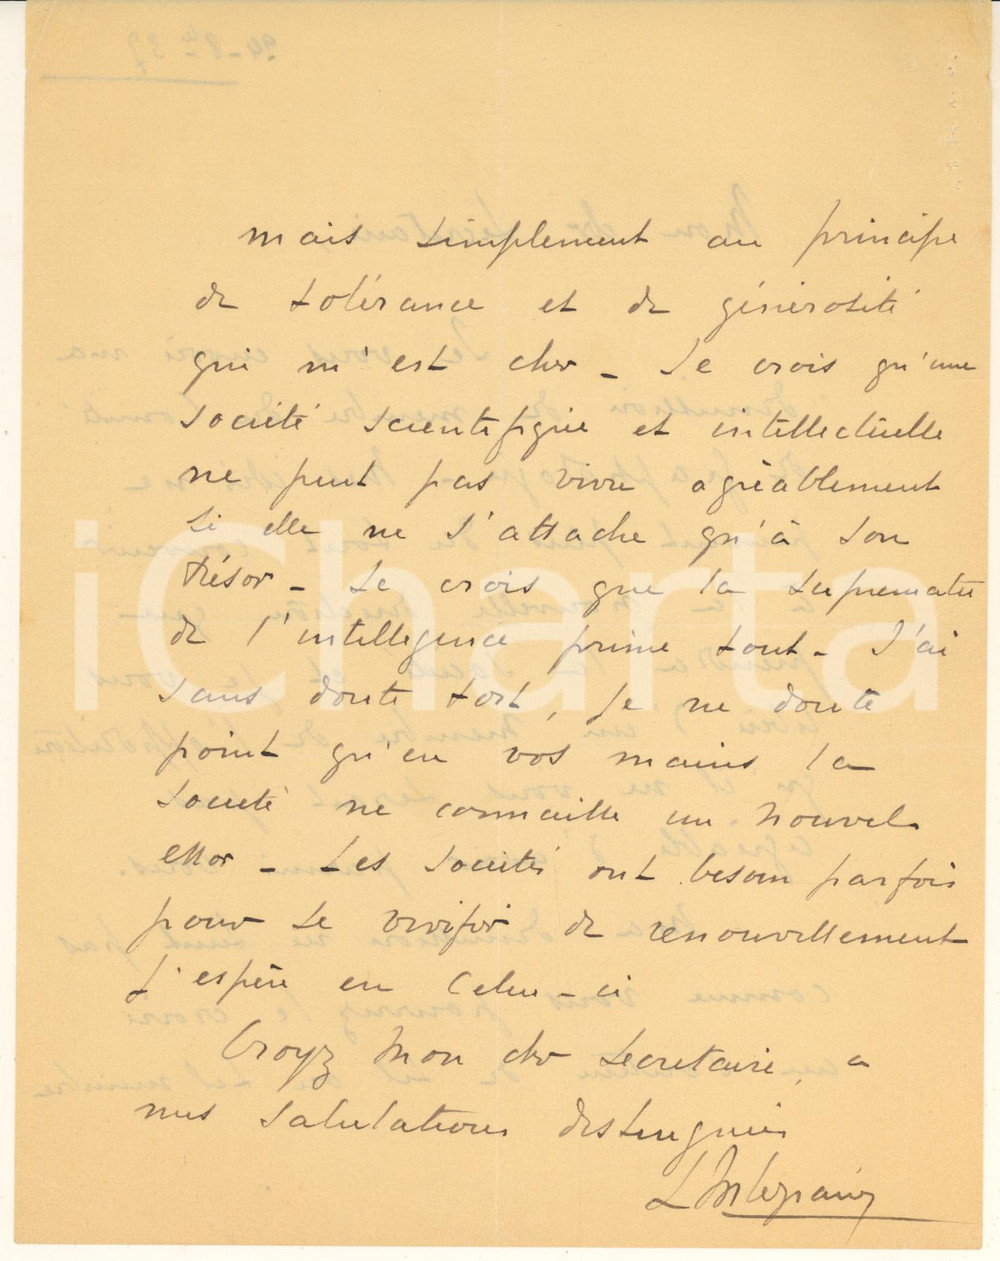 mais simplement au principe
de tolérance et de générosité
qui m'est cher _ Je crois qu'une
société scientifique et intellectuelle
ne peut pas vivre agréablement
si elle ne s'attache qu'à son
trésor _ Je crois que la suprematie
de l'intelligence prime tout _ J'ai
sans doute tort, je ne doute
point qu'en vos mains la
société ne connaisse un nouvel
essor _ Les sociétés ont besoin parfois
pour se vivifier de renouvellement
J'espère en celui-ci
Croyez Mon cher secretaire, a
mes salutations distinguées
iCharta